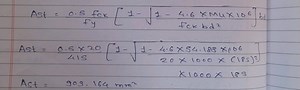 Ast = 0.5 fck / fy [ 1 - √1 - 4.6 × Mu × 10⁶ / fck bd² ] bd
Ast = 0.5 × 20 / 415 [ 1 - √1 - 4.6 × 54.185 × 10⁶ / 20 × 1000 × (185)² ]
× 1000 × 185
Ast = 903.164 mm²